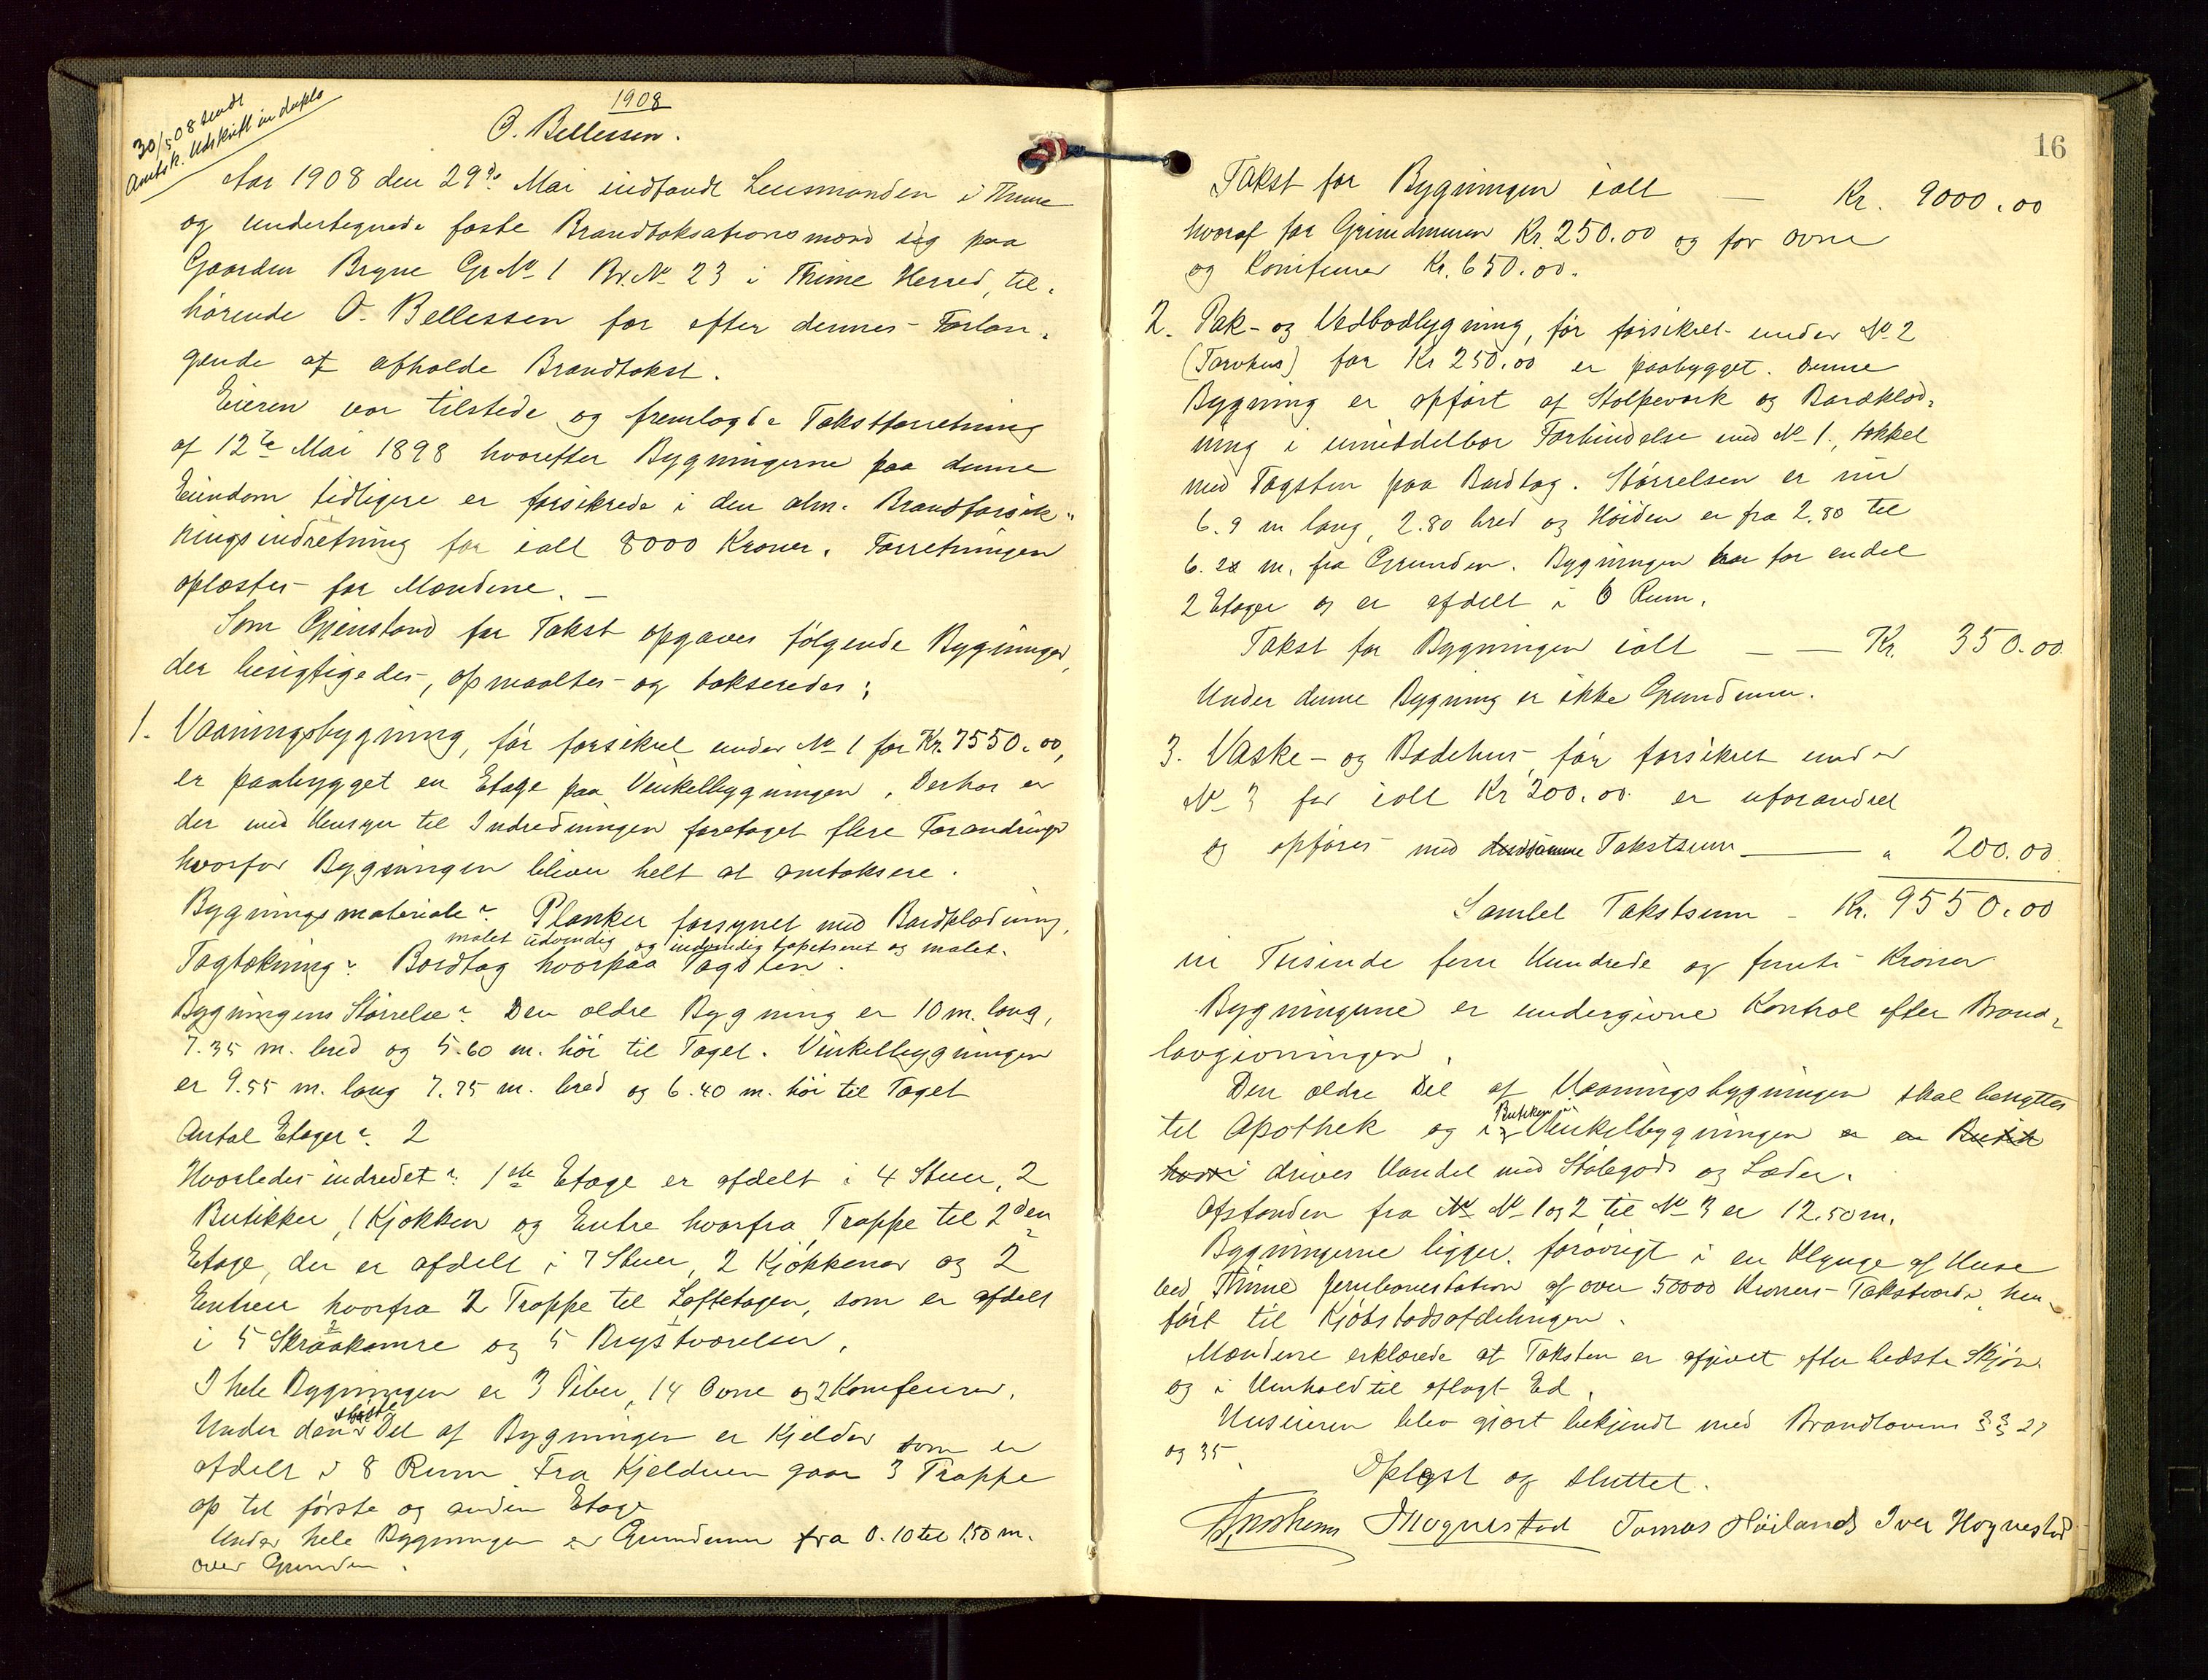 30/5 08 sendt
Amtsk. Udskrift in duplo
1908
O. Bellessen.
Aar 1908 den 29de Mai indfandt Lensmanden i Thime
og undertegnede faste Brandtaksationsmænd sig paa
Gaarden Bryne Gr No 1 Br. No 23 i Thime Herred, til-
hørende O. Bellessen for efter dennes Forlan-
gende at afholde Brandtakst.
Eieren var tilstede og fremlagde Takstforretning
af 12te Mai 1898 hvorefter Bygningerne paa denne
Eiendom tidligere er forsikrede i den alm. Brandforsik-
ringsindretning for ialt 8000 Kroner. Forretningen
oplæstes for Mændene. —
Som Gjenstand for Takst opgaves følgende Bygninger,
der besigtigedes, opmaaltes og takseredes:
1. Vaaningsbygning, før forsikret under No 1 for Kr. 7550.00,
er paabygget en Etage paa Vinkelbygningen. Derhos er
der med Hensyn til Indredningen foretaget flere Forandringer
hvorfor Bygningen bliver helt at omtaksere.
Bygningsmateriale? Planker forsynet med Bordklædning,
malet udvendig og indvendig tapetseret og malet.
Tagtækning? Bordtag hvorpaa Tagsten.
Bygningens Størrelse? Den ældre Bygning er 10 m. lang,
7.35 m. bred og 5.60 m. høi til Taget. Vinkelbygningen
er 9.55 m. lang 7.75 m. bred og 6.40 m. høi til Taget
Antal Etager? 2
Hvorledes indredet? 1ste Etage er afdelt i 4 Stuer, 2
Butikker, 1 Kjøkken og Entre hvorfra Trappe til 2den
Etage, der er afdelt i 7 Stuer, 2 Kjøkkener og 2
Entreer hvorfra 2 Trappe til Loftetagen, som er afdelt
i 5 Skraakamre og 5 Brystværelser.
I hele Bygningen er 3 Piber, 14 Ovne og 2 Komfeurer.
Under den største Del af Bygningen er Kjelder som er
afdelt i 8 Rum. Fra Kjelderen gaar 3 Trappe
op til første og anden Etage
Under hele Bygningen er Grundmur fra 0.10 til 1.50 m.
over Grunden.
16
Takst for Bygningen ialt — Kr. 9000.00
hvoraf for Grundmuren Kr. 250.00 og for Ovne
og Komfeurer Kr. 650.00.
2. Pak- og Vedbodbygning, før forsikret under No 2
(Torvhus) for Kr 250.00 er paabygget. Denne
Bygning er opført af Stolpeverk og Bordklæd-
ning i umiddelbar Forbindelse med No 1., tækket
med Tagsten paa Bordtag. Størrelsen er nu
6.9 m lang, 2.80 bred og Høiden er fra 2.80 til
m. fra Grunden. Bygningen har for endel
2 Etager og er afdelt i 6 Rum.
Takst for Bygningen ialt — — Kr. 350.00
Under denne Bygning er ikke Grundmur.
3. Vaske- og Badehus, før forsikret under
No 3 for ialt Kr 200.00 er uforandret
og opføres med Takstsum — " 200.00
Samlet Takstsum - Kr. 9550.00
ni Tusinde fem Hundrede og femti Kroner
Bygningerne er undergivne Kontrol efter Brand-
lovgivningen.
Den ældre Del af Vaaningsbygningen skal benyttes
til Apothek og i Butiken i Vinkelbygningen er en Butik
hvori drives Handel med Stabegods og Læder.
Afstanden fra No 1 og 2 til No 3 er 12.50 m.
Bygningerne ligger forøvrigt i en Klynge af Huse
ved Thime Jernbanestation af over 50000 Kroners Takstværdi, hen-
ført til Kjøbstadsafdelingen.
Mændene erklærede at Taksten er afgivet efter bedste Skjøn
og i Henhold til aflagt Ed.
Huseieren blev gjort bekjendt med Brandlovens §§ 27
og 35.
Oplæst og sluttet.
Mognestad Tomas Høiland Iver Hognestad